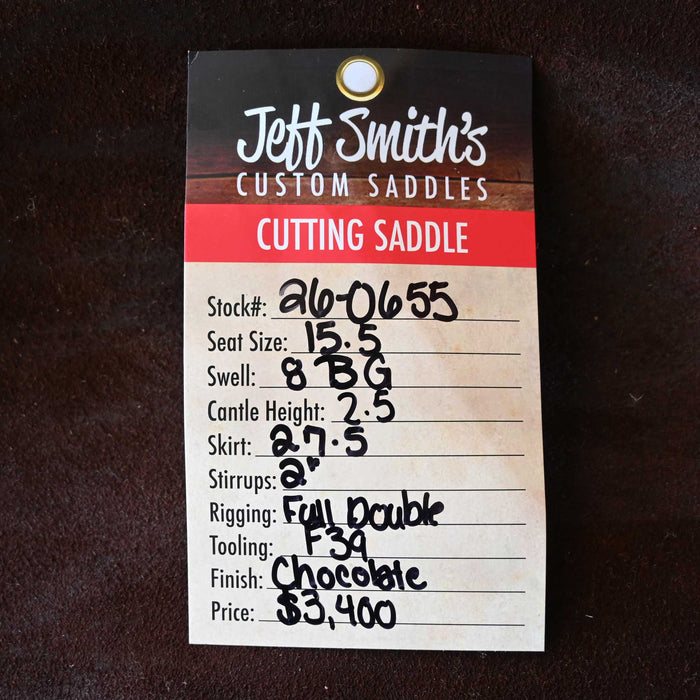 Jeff Smith's
CUSTOM SADDLES
CUTTING SADDLE
Stock#: 26-0655
Seat Size: 15.5
Swell: 8 BG
Cantle Height: 2.5
Skirt: 27.5
Stirrups: 2"
Rigging: Full Double
Tooling: F39
Finish: Chocolate
Price: $3,400